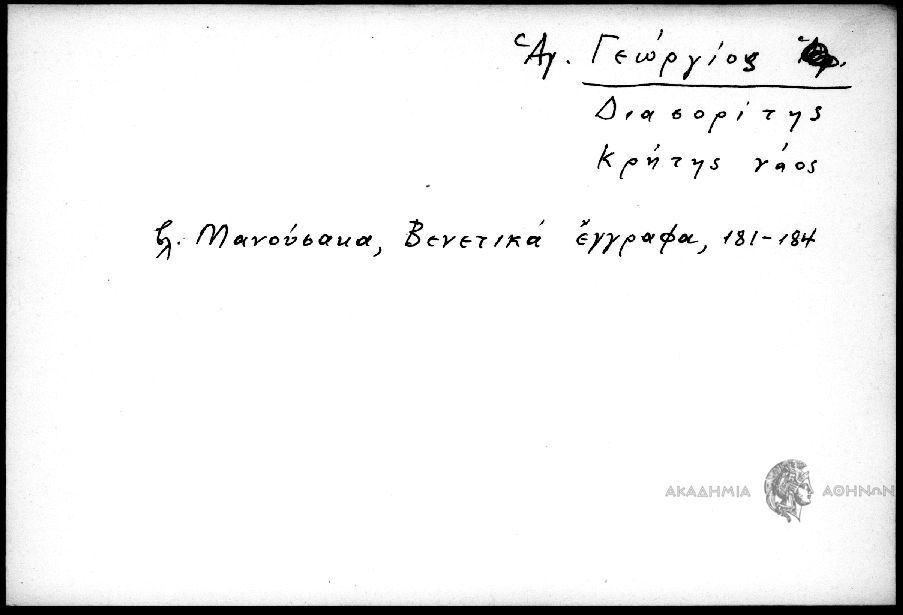 Ἁγ. Γεώργιος
Διασορίτης
Κρήτης νάος
βλ. Μανούσακα, Βενετικά ἔγγραφα, 181-184
ΑΚΑΔΗΜΙΑ ΑΘΗΝΩΝ